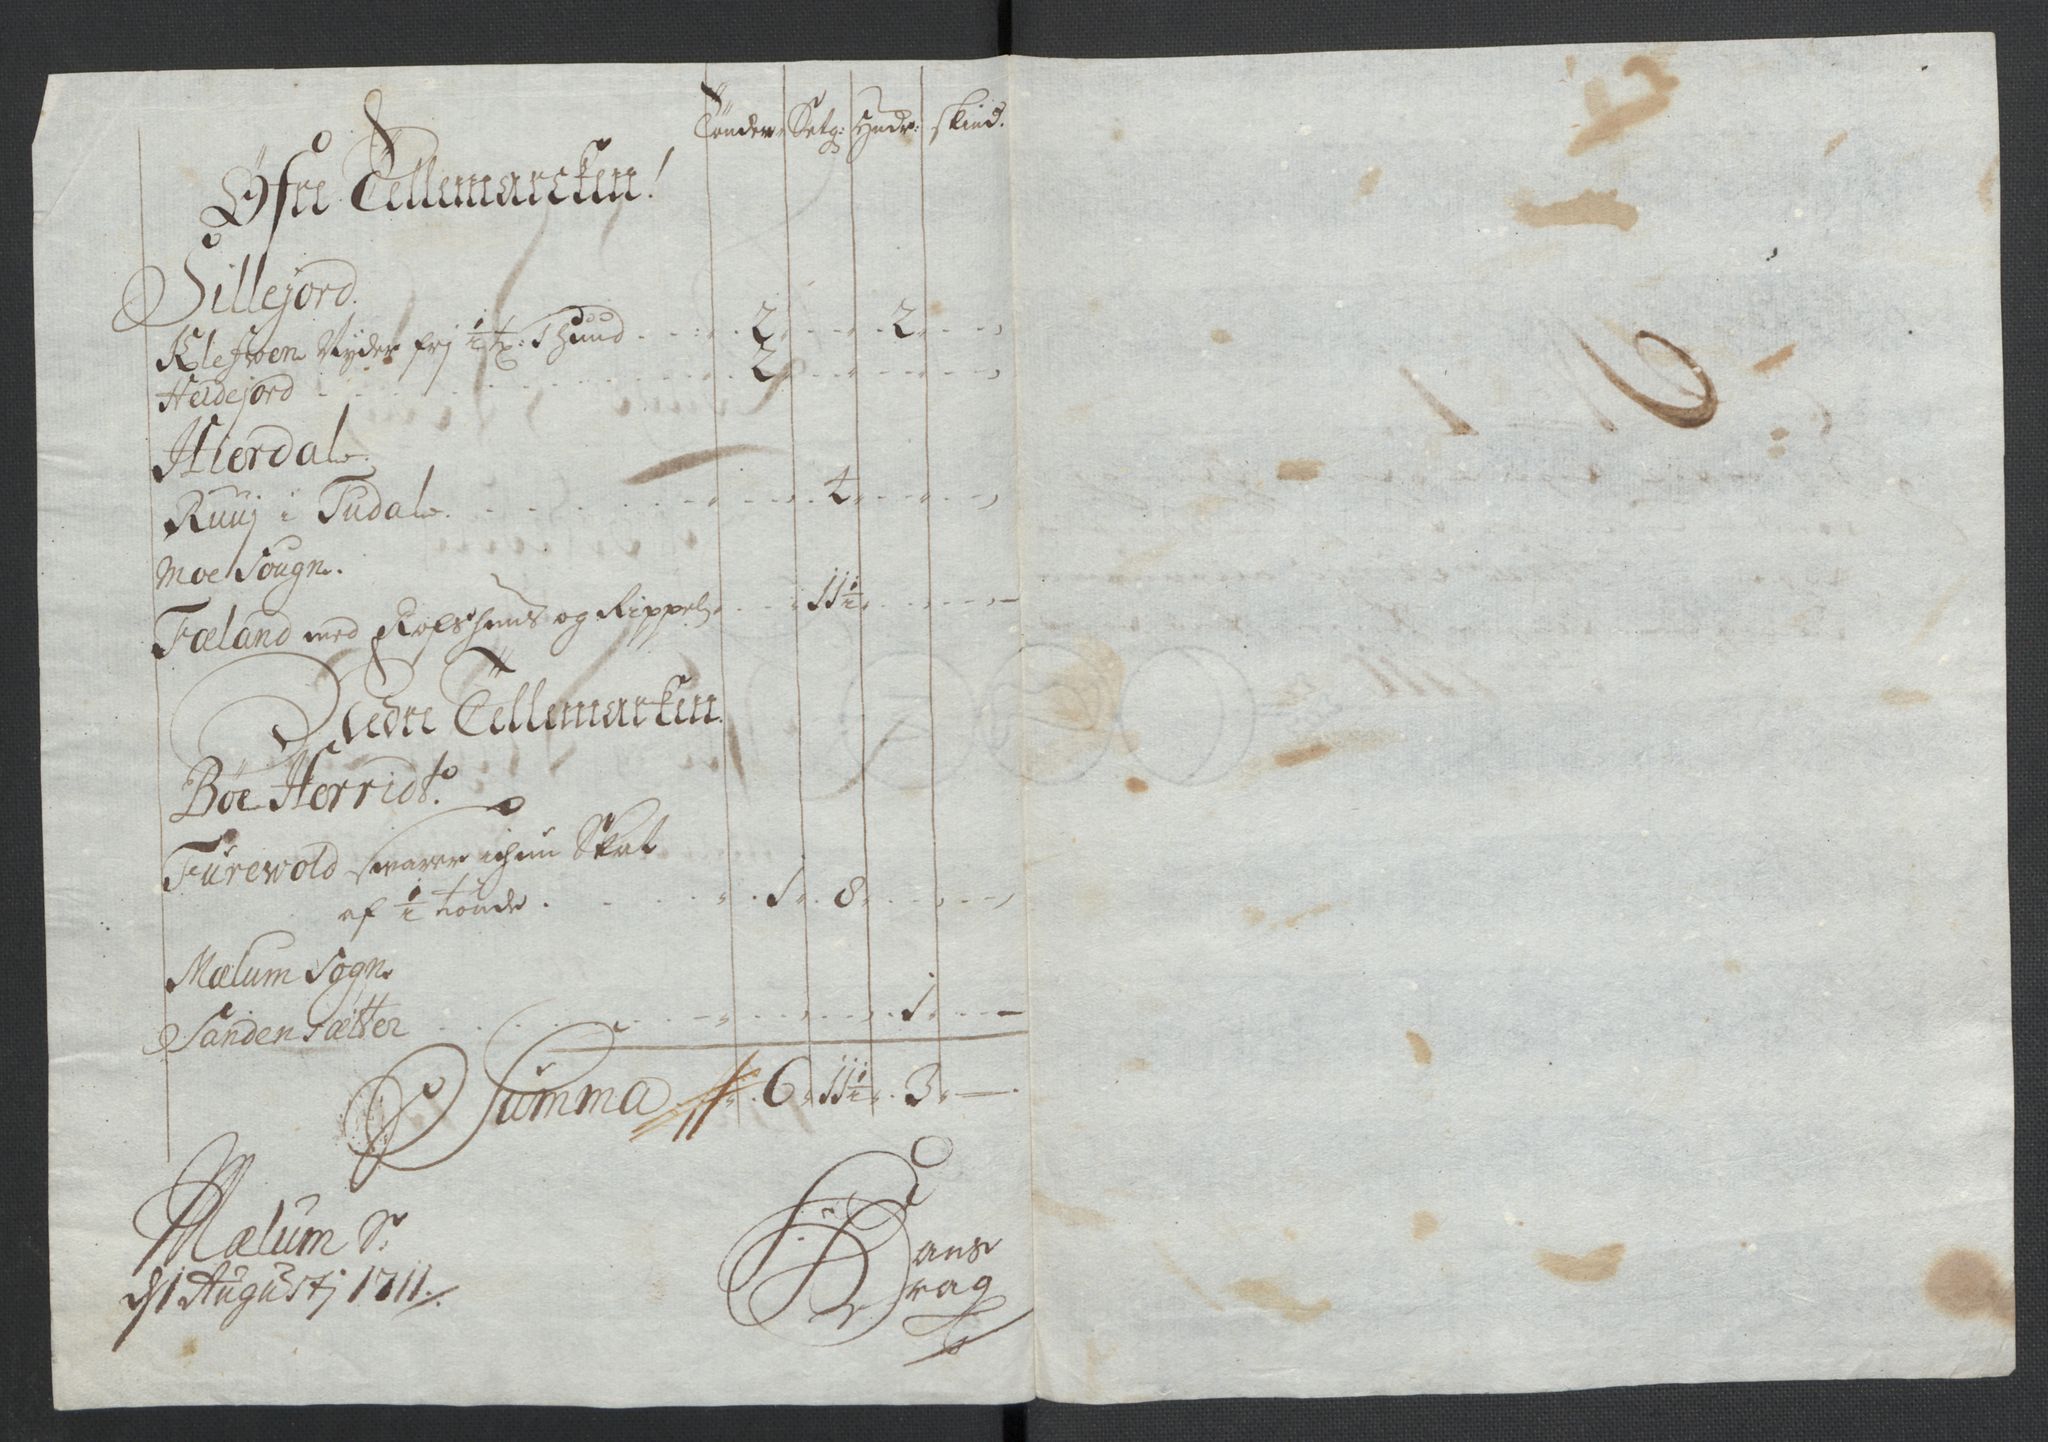 Tønder Setg: Hudr: skind.
Øfre Tellemarcken!
Sillejord.
Klefwen Nyder frj ½ tp: 1 huud 2 2
Heidejord 2
Hierdal.
Ruuj i Tudal. 4
Moe Sougn.
Fæland med Rofshuus og Rippel 11½
Nedre Tellemarcken.
Böe Herridt.
Furewold swarer ichun Skat
af ½ tönde 1 8
Mælum Sogn
Sanden Sætter 1
Summa 6 11½ 3 —
Mælum Sr
d 1 Augustj 1711.
Hans
Brag